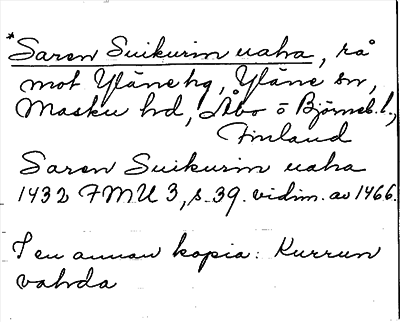 *Saren Suikurin uaha, rå
mot Yläne hg, Yläne sn,
Masku hd, Åbo o Björneb. l.,
Finland
Saren Suikurin uaha
1432 FMU 3, s. 39. vidim. av 1466.
I en annan kopia: Kurrun
vahda